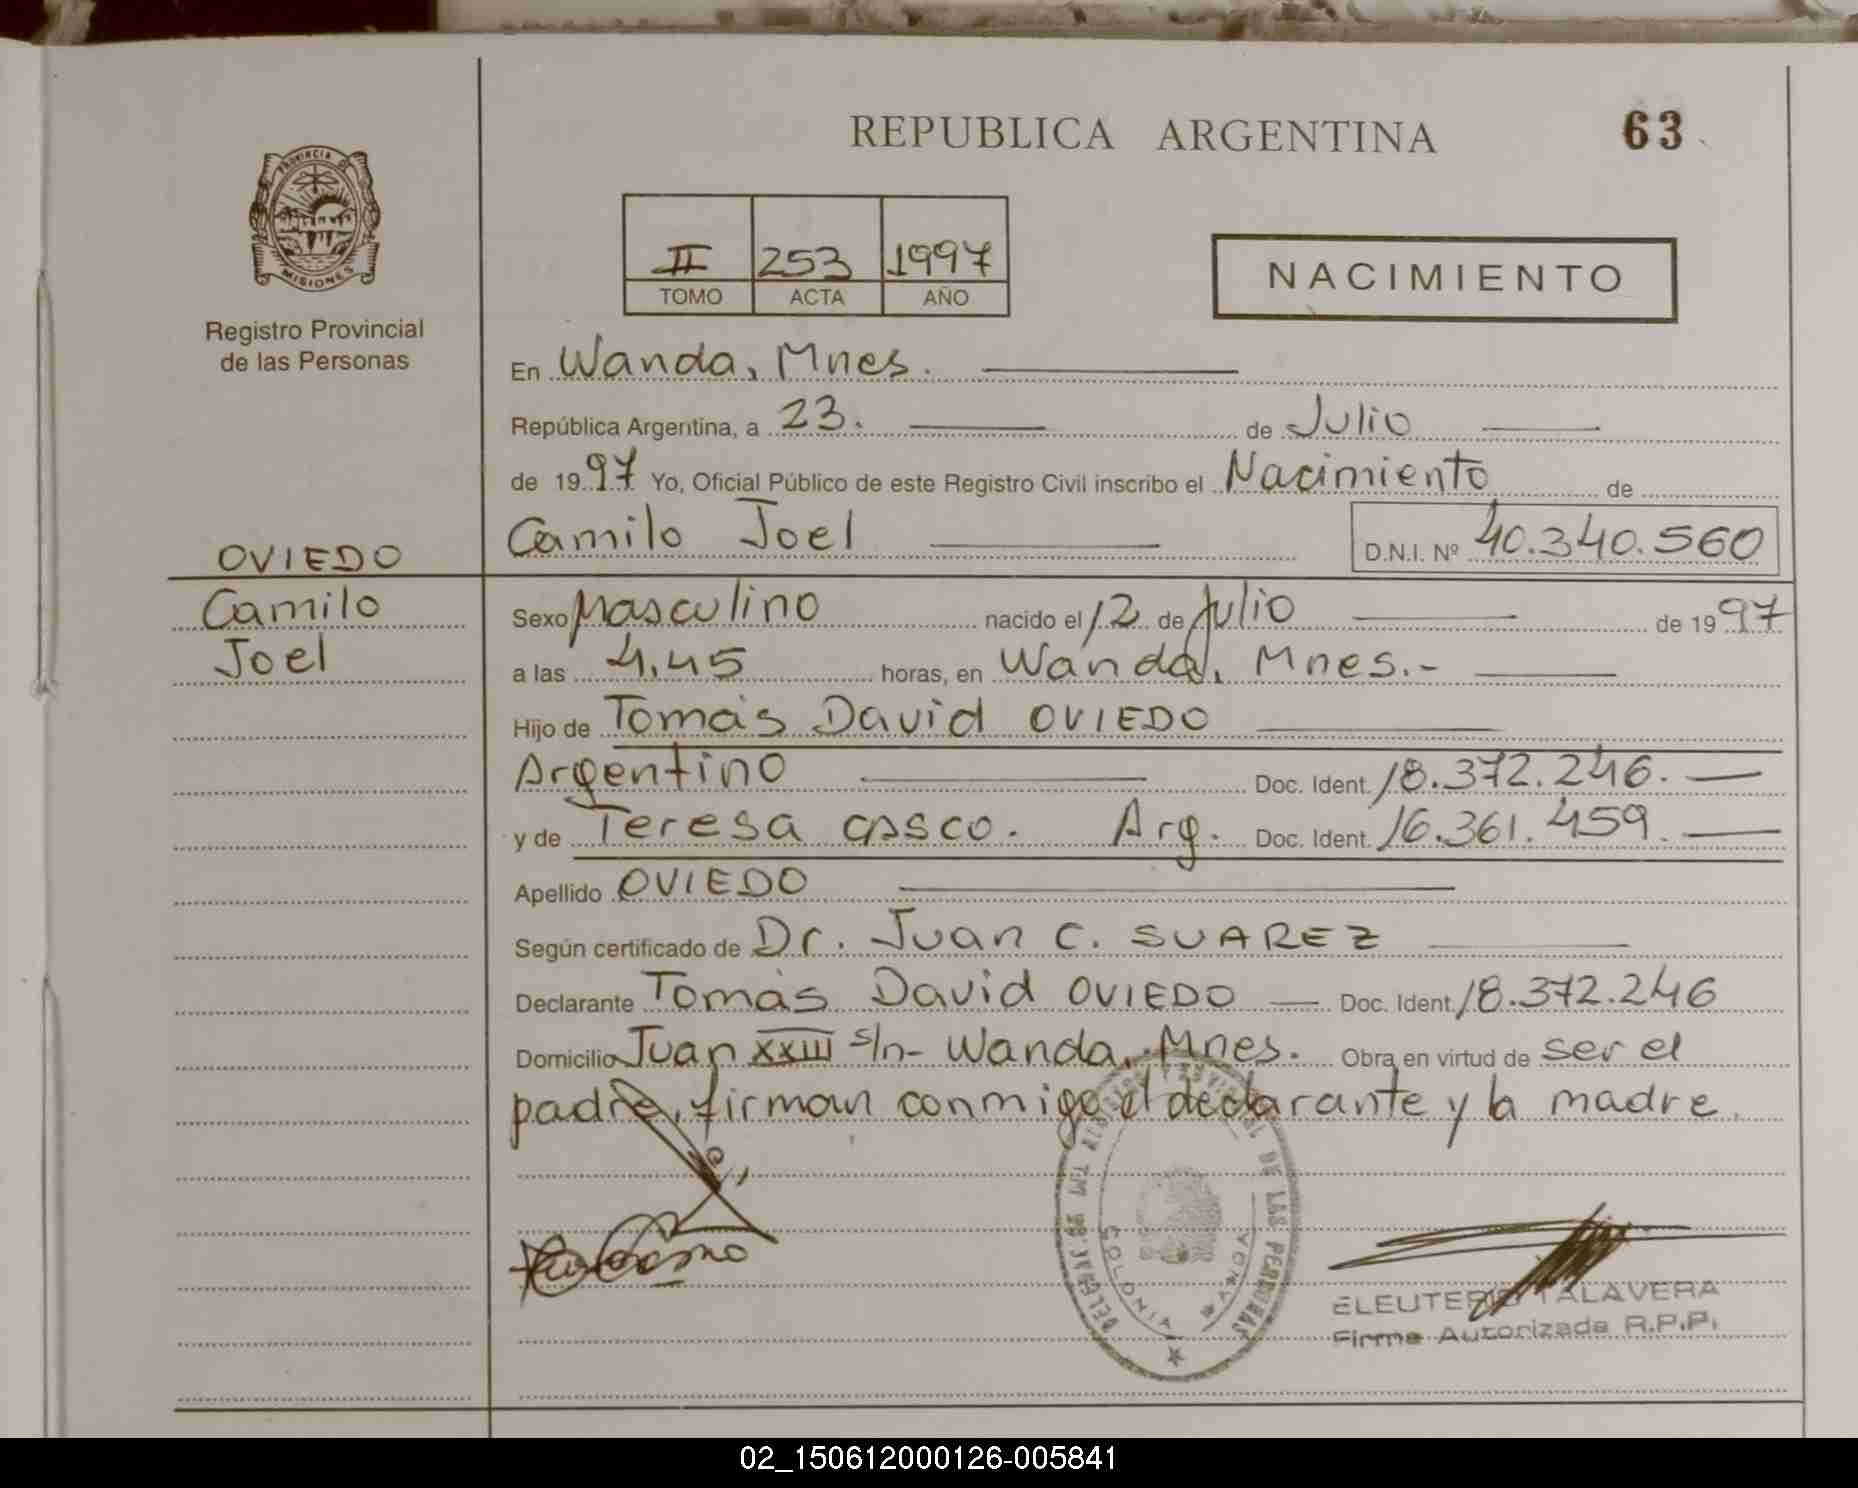 REPUBLICA ARGENTINA
63
PROVINCIA DE
MISIONES
Registro Provincial
de las Personas
II 253 1997
TOMO ACTA AÑO
NACIMIENTO
En Wanda, Mnes.
República Argentina, a 23. de Julio
de 1997 Yo, Oficial Público de este Registro Civil inscribo el Nacimiento de
Camilo Joel D.N.I. Nº 40.340.560
OVIEDO
Camilo
Joel
Sexo Masculino nacido el 12 de Julio de 1997
a las 4,45 horas, en Wanda, Mnes.-
Hijo de Tomás David OVIEDO
Argentino Doc. Ident. 18.372.246.
y de Teresa CASCO. Arg. Doc. Ident. 16.361.459.
Apellido OVIEDO
Según certificado de Dr. Juan C. SUAREZ
Declarante Tomás David OVIEDO Doc. Ident. 18.372.246
Domicilio Juan XXIII s/n- Wanda, Mnes. Obra en virtud de ser el
padre, firman conmigo el declarante y la madre.
DE LAS PERSONAS
COLONIA WANDA
ELEUTERIO TALAVERA
Firma Autorizada R.P.P.
02_150612000126-005841